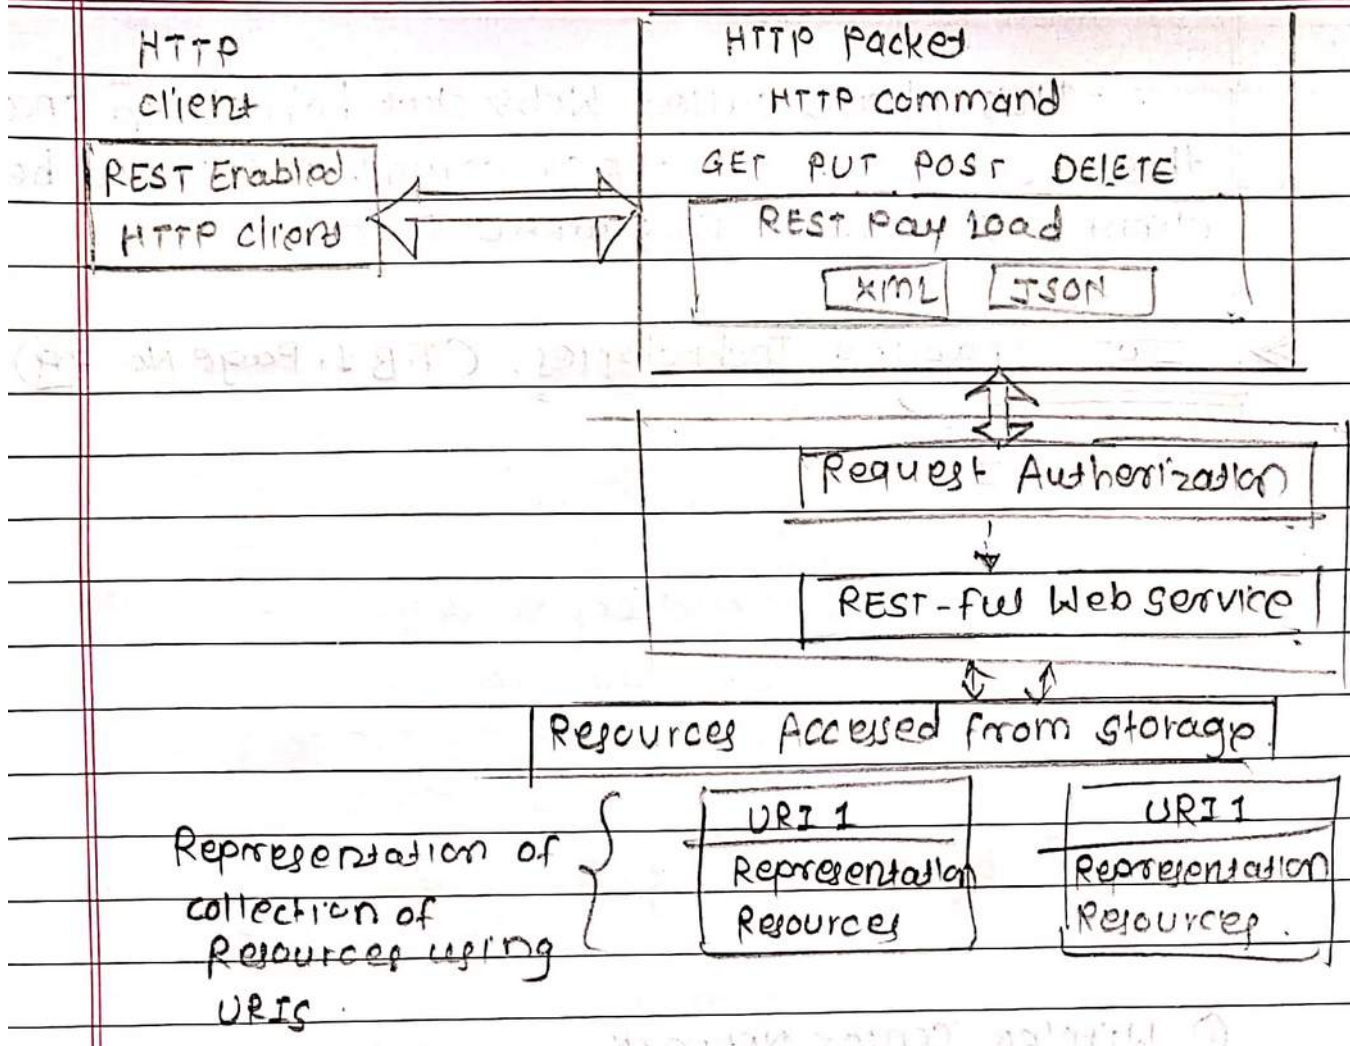 HTTP
client
REST Enabled
HTTP client
HTTP Packet
HTTP command
GET PUT POST DELETE
REST Pay Load
XML JSON
Request Authorization
REST-ful Web service
Resources Accessed from storage
Representation of
collection of
Resources using
URIs.
URI 1
Representation
Resources
URI 1
Representation
Resources.